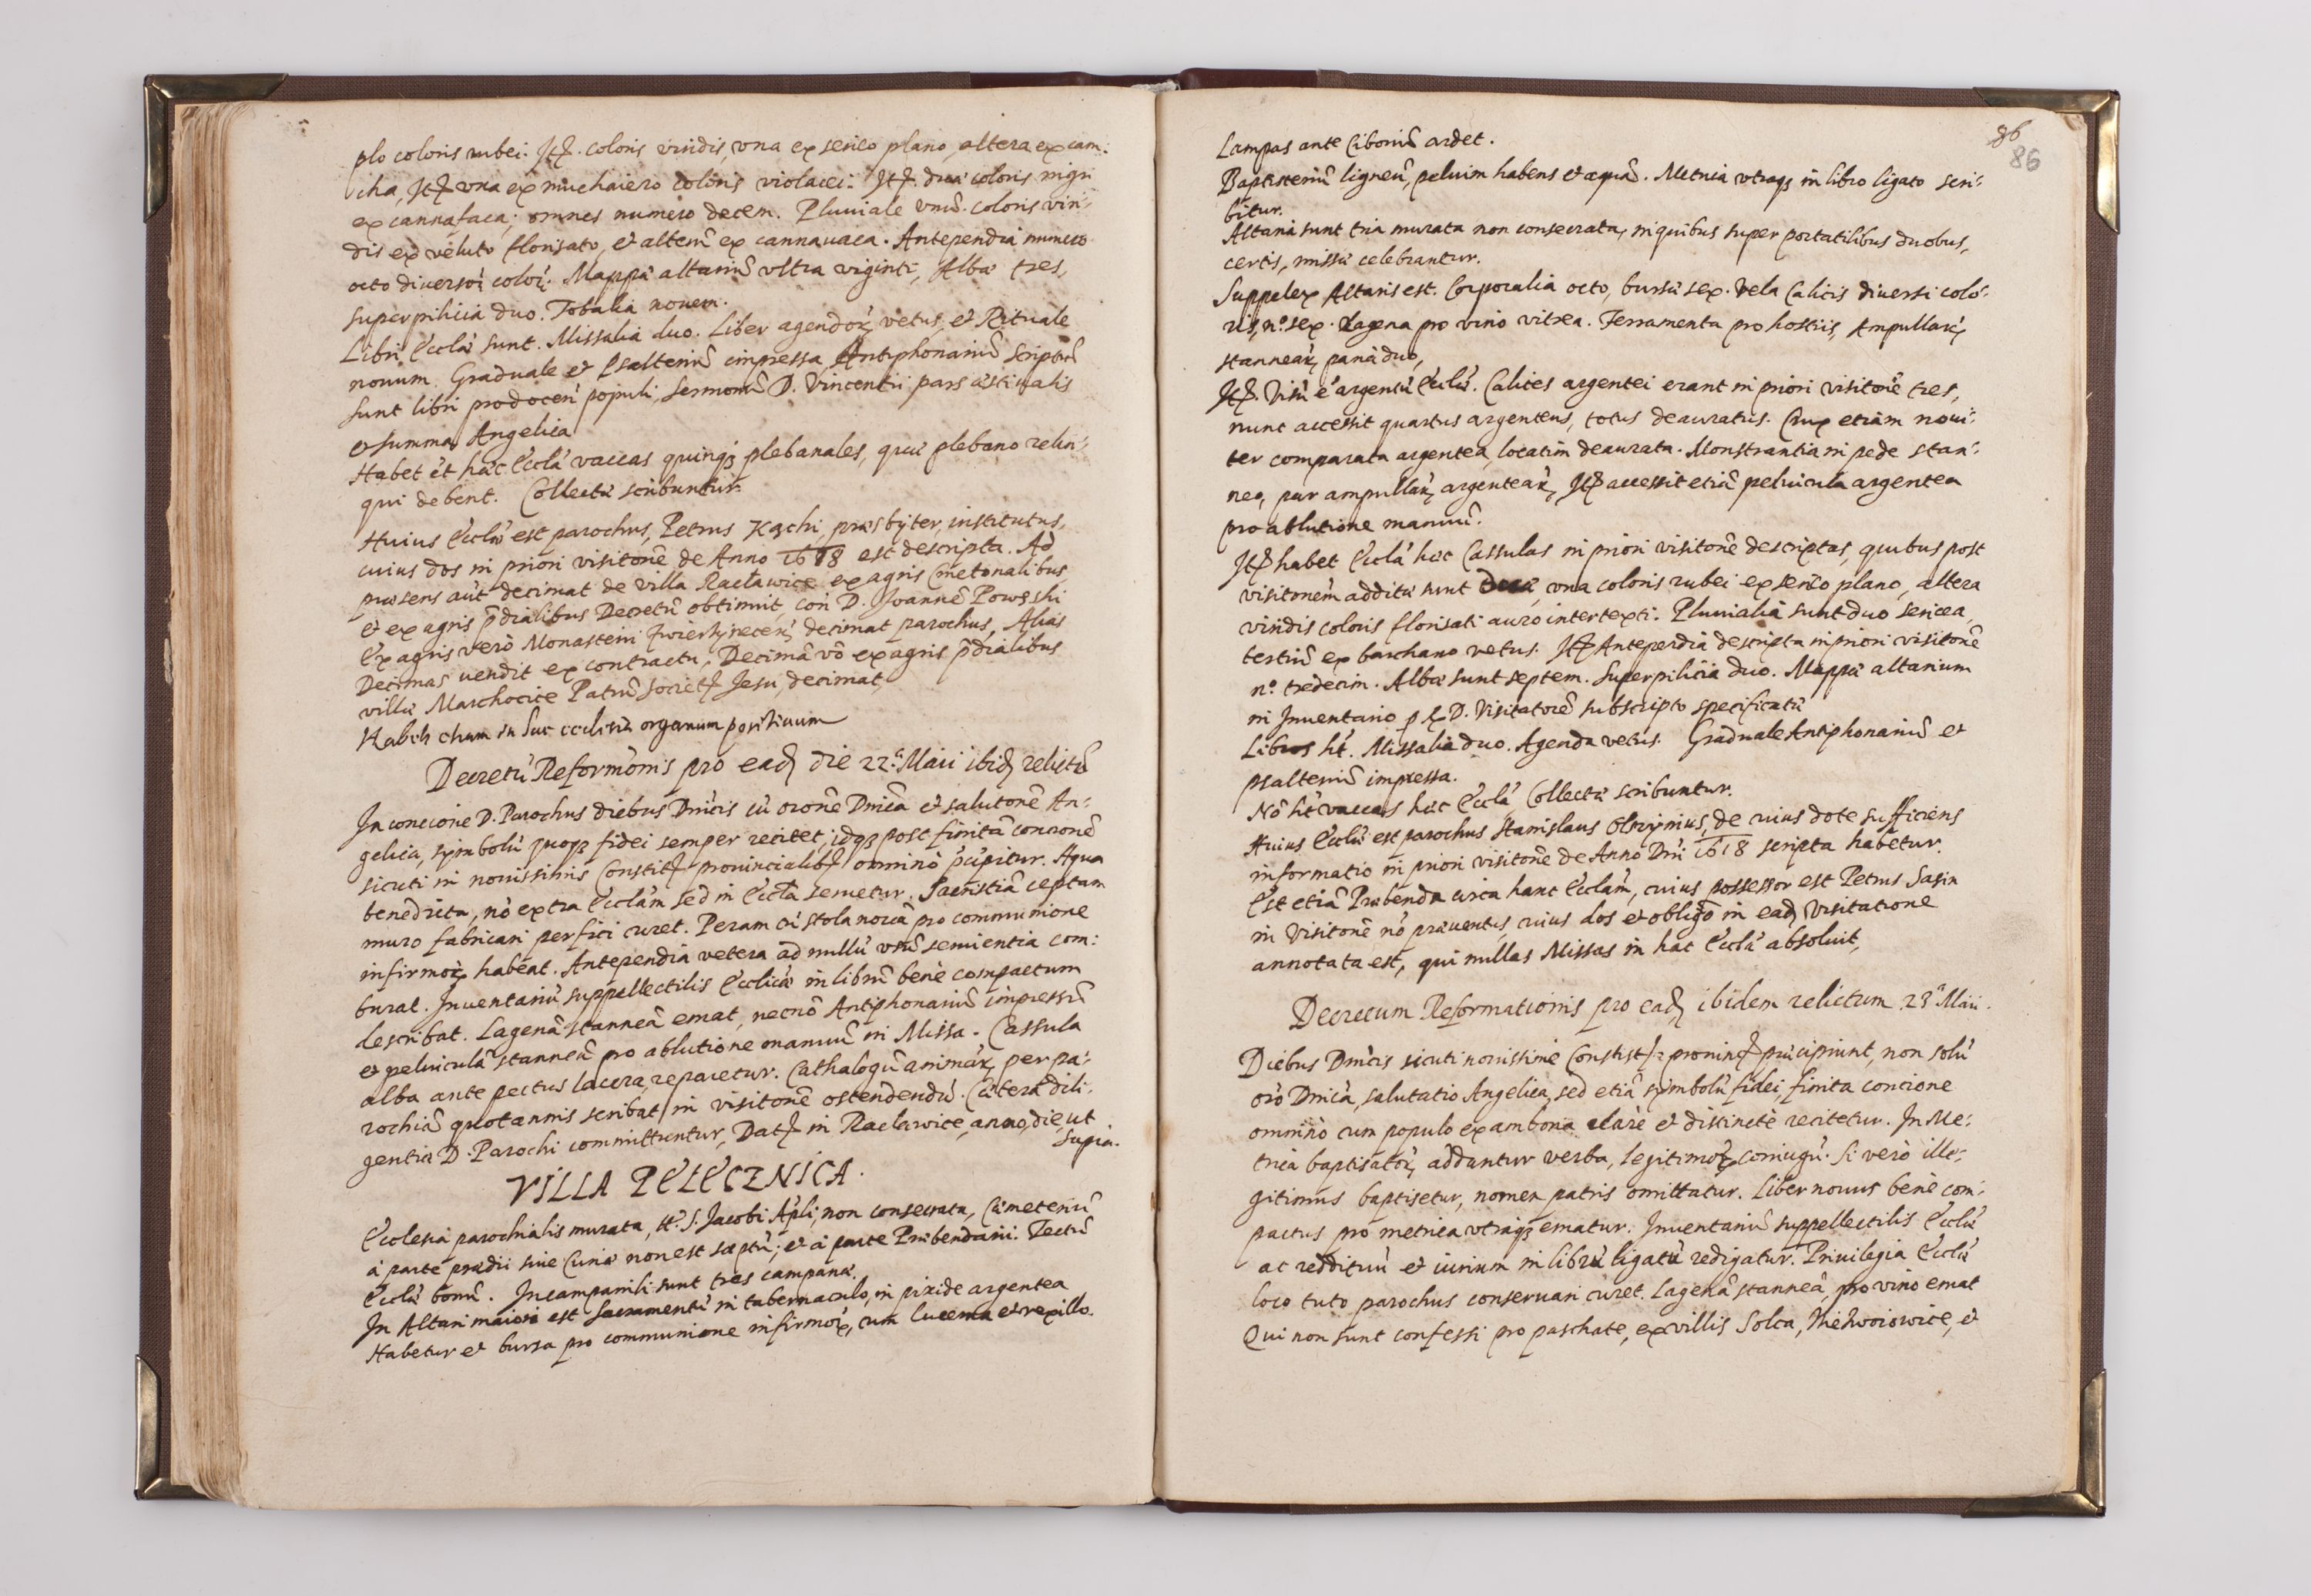 plo coloris rubei. Itẽ. coloris viridis, vna ex serico plano, altera ex cam:
cha, Itẽ vna ex muchaiero coloris violacei. Itẽ. duæ coloris nigri
ex cannafaca; omnes numero decem. Pluuiale vnũ. coloris viri:
dis ex veluto florisato, et alterũ ex cannauaca. Antependia numero
octo diuersoꝝ coloꝝ. Mappæ altariũ vltra viginti, Albæ tres,
superpilicia duo. Tobalia nouem.
Libri Eccłæ sunt. Missalia duo. Liber agendoꝝ vetus, et Rituale
nouum. Graduale et Psalteriũ impressa, Antiphonariũ scriptũ
sunt libri pro docen̄ populi, Sermonũ D. Vincentii pars æstiualis
et summa Angelica
Habet et hæc Eccła vaccas quinqꝫ plebanales, quæ plebano relin:
qui debent. Collectæ scribuntur.
Huius Eccłæ est parochus, Petrus Kąchi, præsbÿter, institutus,
cuius dos in priori visitone de Anno 1618 est descripta. Ad
præsens aũt decimat de villa Racławice ex agris Cmetonalibus,
et ex agris p̃dialibus Decretũ obtinuit, con̄ D. Joannẽ Powęski
Ex agris verò Monasterii Zwierzÿnecen̄ decimat parochus, Alias
Decimas uendit ex contractu, Decimã võ ex agris p̃dialibus
villæ Marchocice Patrũ Societ. Jesu, decimat,
Habet etiam in hac ecclesia organum positiuum
Decretũ Reformõnis pro eadꝫ die 22.ª Maii ibidꝫ relictũ
In concione D. Parochus diebus Dn̄icis cũ orõne Dn̄ica et salutõne An:
gelica, sÿmbolũ quoqꝫ fidei semper recitet; idqꝫ post finitã concionẽ
sicuti in nouissimis Constit. prouincialib. omninò p̃cipitur. Aqua
benedicta, nõ extra Eccłam sed in Eccła seruetur. Sacristiã ceptam
muro fabricari perfici curet. Peram cũ stola nouã pro communione
infirmoꝝ habeat. Antependia vetera ad nullũ vsũ seruientia com:
burat. Inuentariũ suppellectilis Eccłicæ in librũ benè compactum
describat. Lagenã stanneã emat, necnõ Antiphonariũ impressũ
et peluiculã stanneã pro ablutione manuũ in Missa. Cassula
alba ante pectus lacera reparetur. Cathalogũ animaꝝ per pa:
rochiã quotannis scribat in visitone ostendendũ. Cætera dili:
gentiæ D. Parochi committuntur, Dat. in Racławice, anno, die, ut
supra.
VILLA PEŁECZNICA.
Ecclesia parochialis murata, tt.º S. Jacobi Apłi, non consecrata, Cæmeteriũ
à parte prædii siue Curiæ non est sæptũ; et à parte Præbendarii. Tectũ
Eccłæ bonũ. In campanili sunt tres campanæ.
In Altari maiori est Sacramentũ in tabernaculo, in pixide argentea
Habetur et bursa pro communione infirmoꝝ, cum lucerna et vexillo.
86
86
Lampas ante Ciboriũ ardet.
Baptisteriũ ligneũ, peluim habens et æquã. Metrica vtraqꝫ in libro ligato scri:
bitur.
Altaria sunt tria murata non consecrata, in quibus super portatilibus duobus,
certis, missæ celebrantur.
Suppelex Altaris est. Corporalia octo, bursæ sex. Vela Calicis diuersi colo:
ris, nº. sex. Lagena pro vino vitrea. Ferramenta pro hostiis, Ampullarꝝ
stannearꝝ paria duo,
Itẽ. Visũ ẽ argentũ Eccłæ. Calices argentei erant in priori visitone tres,
nunc accessit quartus argenteus, totus deauratus. Crux etiam noui:
ter comparata argentea, locatim deaurata. Monstrantia in pede stan:
neo, par ampullarꝝ argentearꝝ, Itẽ accessit etiã peluicula argentea
pro ablutione manuũ.
Itẽ habet Eccła hæc Cassulas in priori visitone descriptas, quibus post
visitonem additæ sunt duæ, vna coloris rubei ex serico plano, altera
viridis coloris florisati auro intertexti. Pluuialia sunt duo sericea,
tertiũ ex barchano vetus. Itẽ Antependia descripta in priori visitone
nº. tredecim. Albæ sunt septem. Superpilicia duo. Mappæ altarium
in Inuentario p R. D. Visitatorẽ subscripto specificatæ
Libros ht̃. Missalia duo. Agenda vetus. Graduale Antiphonariũ et
psalteriũ impressa.
Nõ ht̃ vaccas hæc Eccła, Collectæ scribuntur.
Huius Eccłæ est parochus Stanislaus Obrzÿnius, de cuius dote sufficiens
informatio in priori visitone de Anno Dn̄i 1618 scripta habetur.
Est etiã Præbenda circa hanc Eccłam, cuius possessor est Petrus Sasin
in Visitone nõ præuentus, cuius dos et obligõ in eadꝫ Visitatione
annotata est, qui nullas Missas in hac Eccła absoluit,
Decretum Reformationis pro eadꝫ ibidem relictum 23ª Maii.
Diebus Dn̄icis sicuti nouissimè Constit. prouin. præcipiunt, non solũ
orõ Dn̄ica, salutatio Angelica, sed etiã sÿmbolũ fidei, finita concione
omninò cum populo ex ambona clarè et distinctè recitetur. In Me:
trica baptisatoꝝ addantur verba, legitimoꝝ coniugũ. Si verò ille:
gitimus baptisetur, nomen patris omittatur. Liber nouus benè com:
pactus pro metrica vtraqꝫ ematur. Inuentariũ suppellectilis Eccłæ
ac reddituũ et iurium in librũ ligatũ redigatur. Priuilegia Eccłæ
loco tuto parochus conseruari curet. Lagenã stanneã, pro vino emat
Qui non sunt confessi pro paschate, ex villis Solca, et